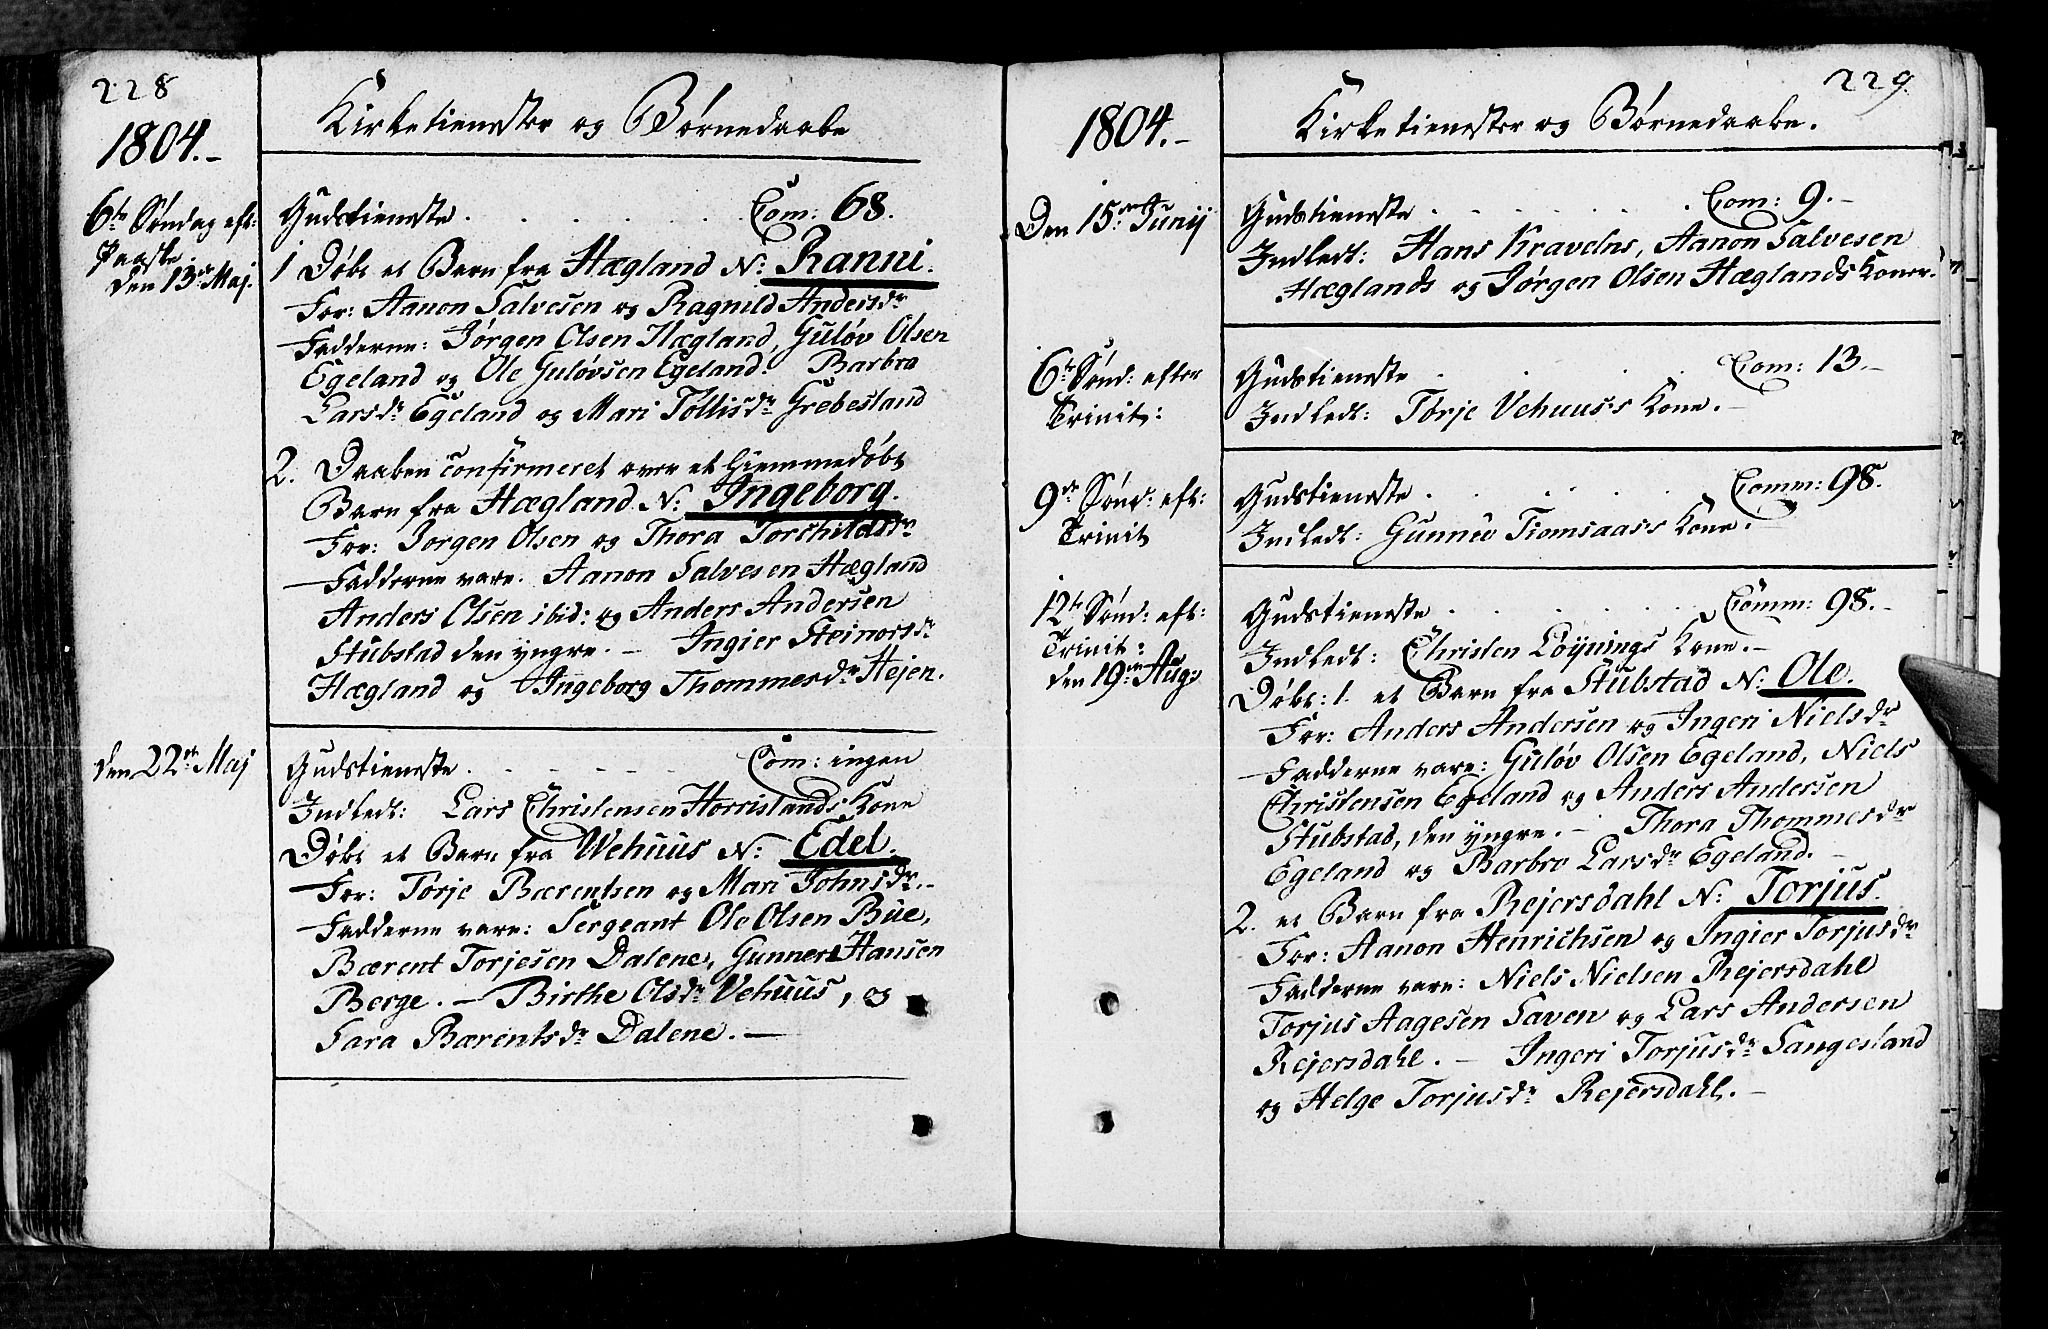 228
1804.-
Kirketienester og Børnedaabe
6te Søndag eft:
Paaske
den 13de Maj.
Gudstieneste . . . . . . Com: 68.
1 Døbt et Barn fra Hægland N: Ranni.
For: Aanon Salvesen og Ragnild Andersdr
Fadderne: Jørgen Olsen Hægland, Guløv Olsen
Egeland og Ole Guløvsen Egeland. Barbra
Larsdr Egeland og Mari Tollisdr Grebesland
2. Daaben confirmeret over et hiemmedøbt
Barn fra Hægland. N: Ingeborg.
For: Jorgen Olsen og Thora Torchildsdr
Fadderne vare: Aanon Salvesen Hægland
Anders Olsen ibid: og Anders Andersen
Stubstad den yngre. - Ingier Steinorsdr
Hægland og Ingeborg Thommesdr Hejen.
den 22de Maj
Gudstieneste . . . . . Com: ingen
Indledt: Lars Christensen Horrislands Kone
Døbt et Barn fra Wehuus N: Edel.
For: Torje Bærentsen og Mari Johnsdr.-
Fadderne vare: Sergeant Ole Olsen Bue,
Bærent Torjesen Dalene, Gunner Hansen
Berge. - Birthe Olsdr Vehuus, og
Sara Bærentsdr Dalene. -
229.
1804.-
Kirketienester og Børnedaabe.
Den 15de Junij
Gudstieneste . . . . . . Com: 9.-
Indledt: Hans Kravelns, Aanon Salvesen
Hæglands og Jørgen Olsen Hæglands Koner.
6te Sønd: efter
Trinit:
Gudstieneste . . . . Com: 13.-
Indledt: Torje Vehuus's Kone.-
9de Sønd: eft:
Trinit
Gudstieneste . . . . . Comm: 98.
Indledt: Gunnu Tiomsaas's Kone.
12te Sønd: eft:
Trinit:
den 19de Aug:
Gudstieneste . . . . . . Comm: 98.-
Indledt: Christen Loynings Kone.-
Døbt: 1. et Barn fra Stubstad N: Ole.
For: Anders Andersen og Ingeri Nielsdr
Fadderne vare: Guløv Olsen Egeland, Niels
Christensen Egeland og Anders Andersen
Stubstad, den yngre. - Thora Thommesdr
Egeland og Barbro Larsdr Egeland.-
2. et Barn fra Rejersdahl N: Torjus.
For: Aanon Henrichsen og Ingier Torjusdr
Fadderne vare: Niels Nielsen Rejersdahl
Torjus Aagesen Saven og Lars Andersen
Rejersdahl. - Ingeri Torjusdr Sangesland
og Helge Torjusdr Rejersdahl.-